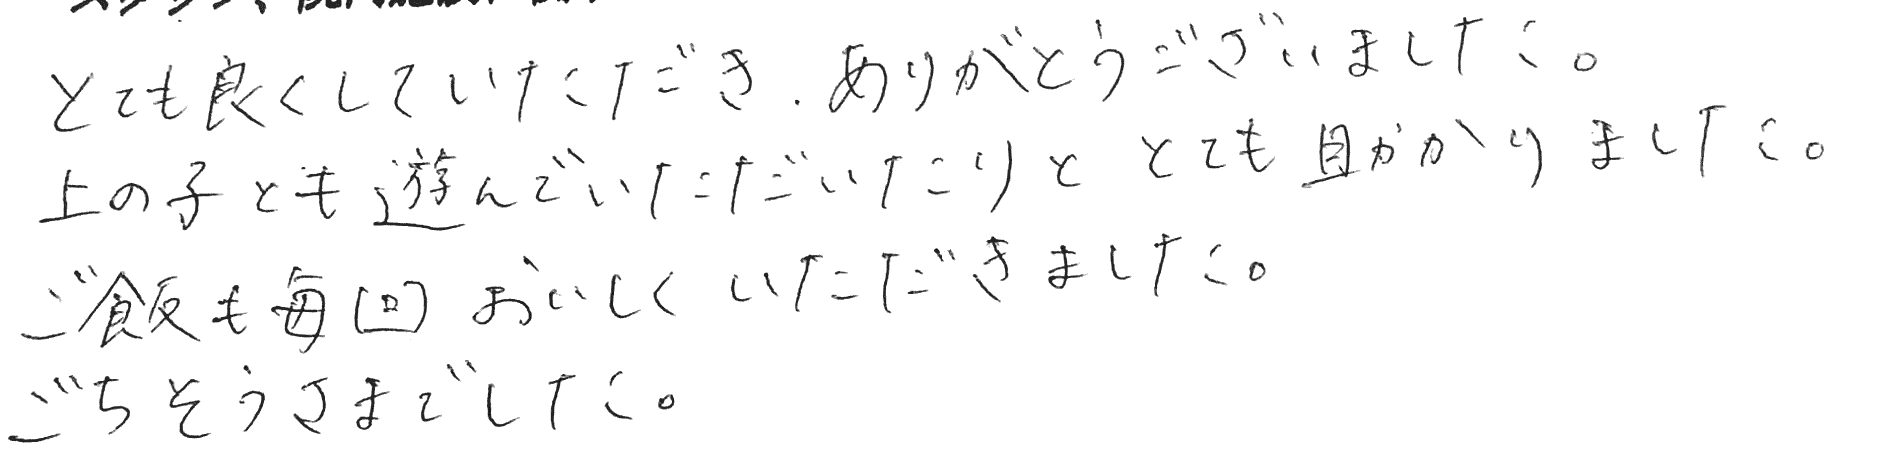 とても良くしていただき、ありがとうございました。
上の子とも遊んでいただいたりと とても助かりました。
ご飯も毎回 おいしく いただきました。
ごちそうさまでした。